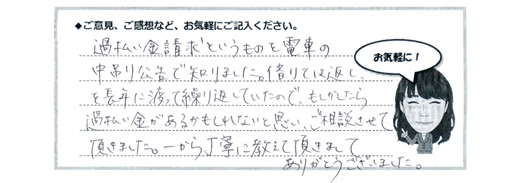 ◆ご意見、ご感想など、お気軽にご記入ください。
過払い金請求というものを電車の
中吊り公告で知りました。借りては返し、
を長年に渡って繰り返していたので、もしかしたら
過払い金があるかもしれないと思い、ご相談させて
頂きました。一から丁寧に教えて頂きまして
ありがとうございました。
お気軽に！